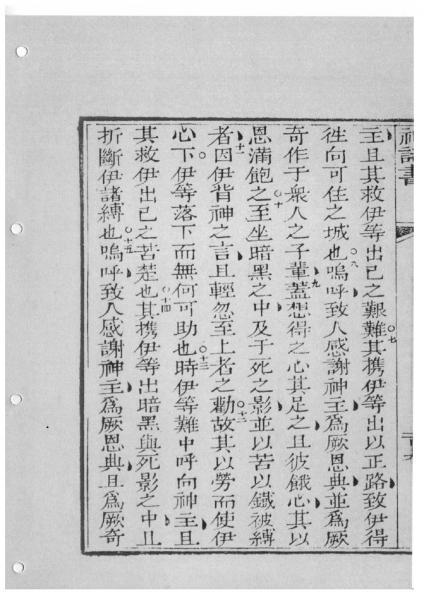 神詩書
主且其救伊等出己之艱難○七其携伊等出以正路致伊得
徃向可住之城也○八嗚呼致人感謝神主爲厥恩典並爲厥
奇作于衆人之子輩○九蓋想得之心其足之且彼餓心其以
恩滿飽之○十至坐暗黑之中及于死之影並以苦以鐵被縛
者○十一因伊背神之言且輕忽至上者之勸○十二故其以勞而使伊
心下伊等落下而無何可助也○十三時伊等難中呼向神主且
其救伊出己之苦楚也○十四其携伊等出暗黑與死影之中且
折斷伊諸縛也○十五嗚呼致人感謝神主爲厥恩典且爲厥奇